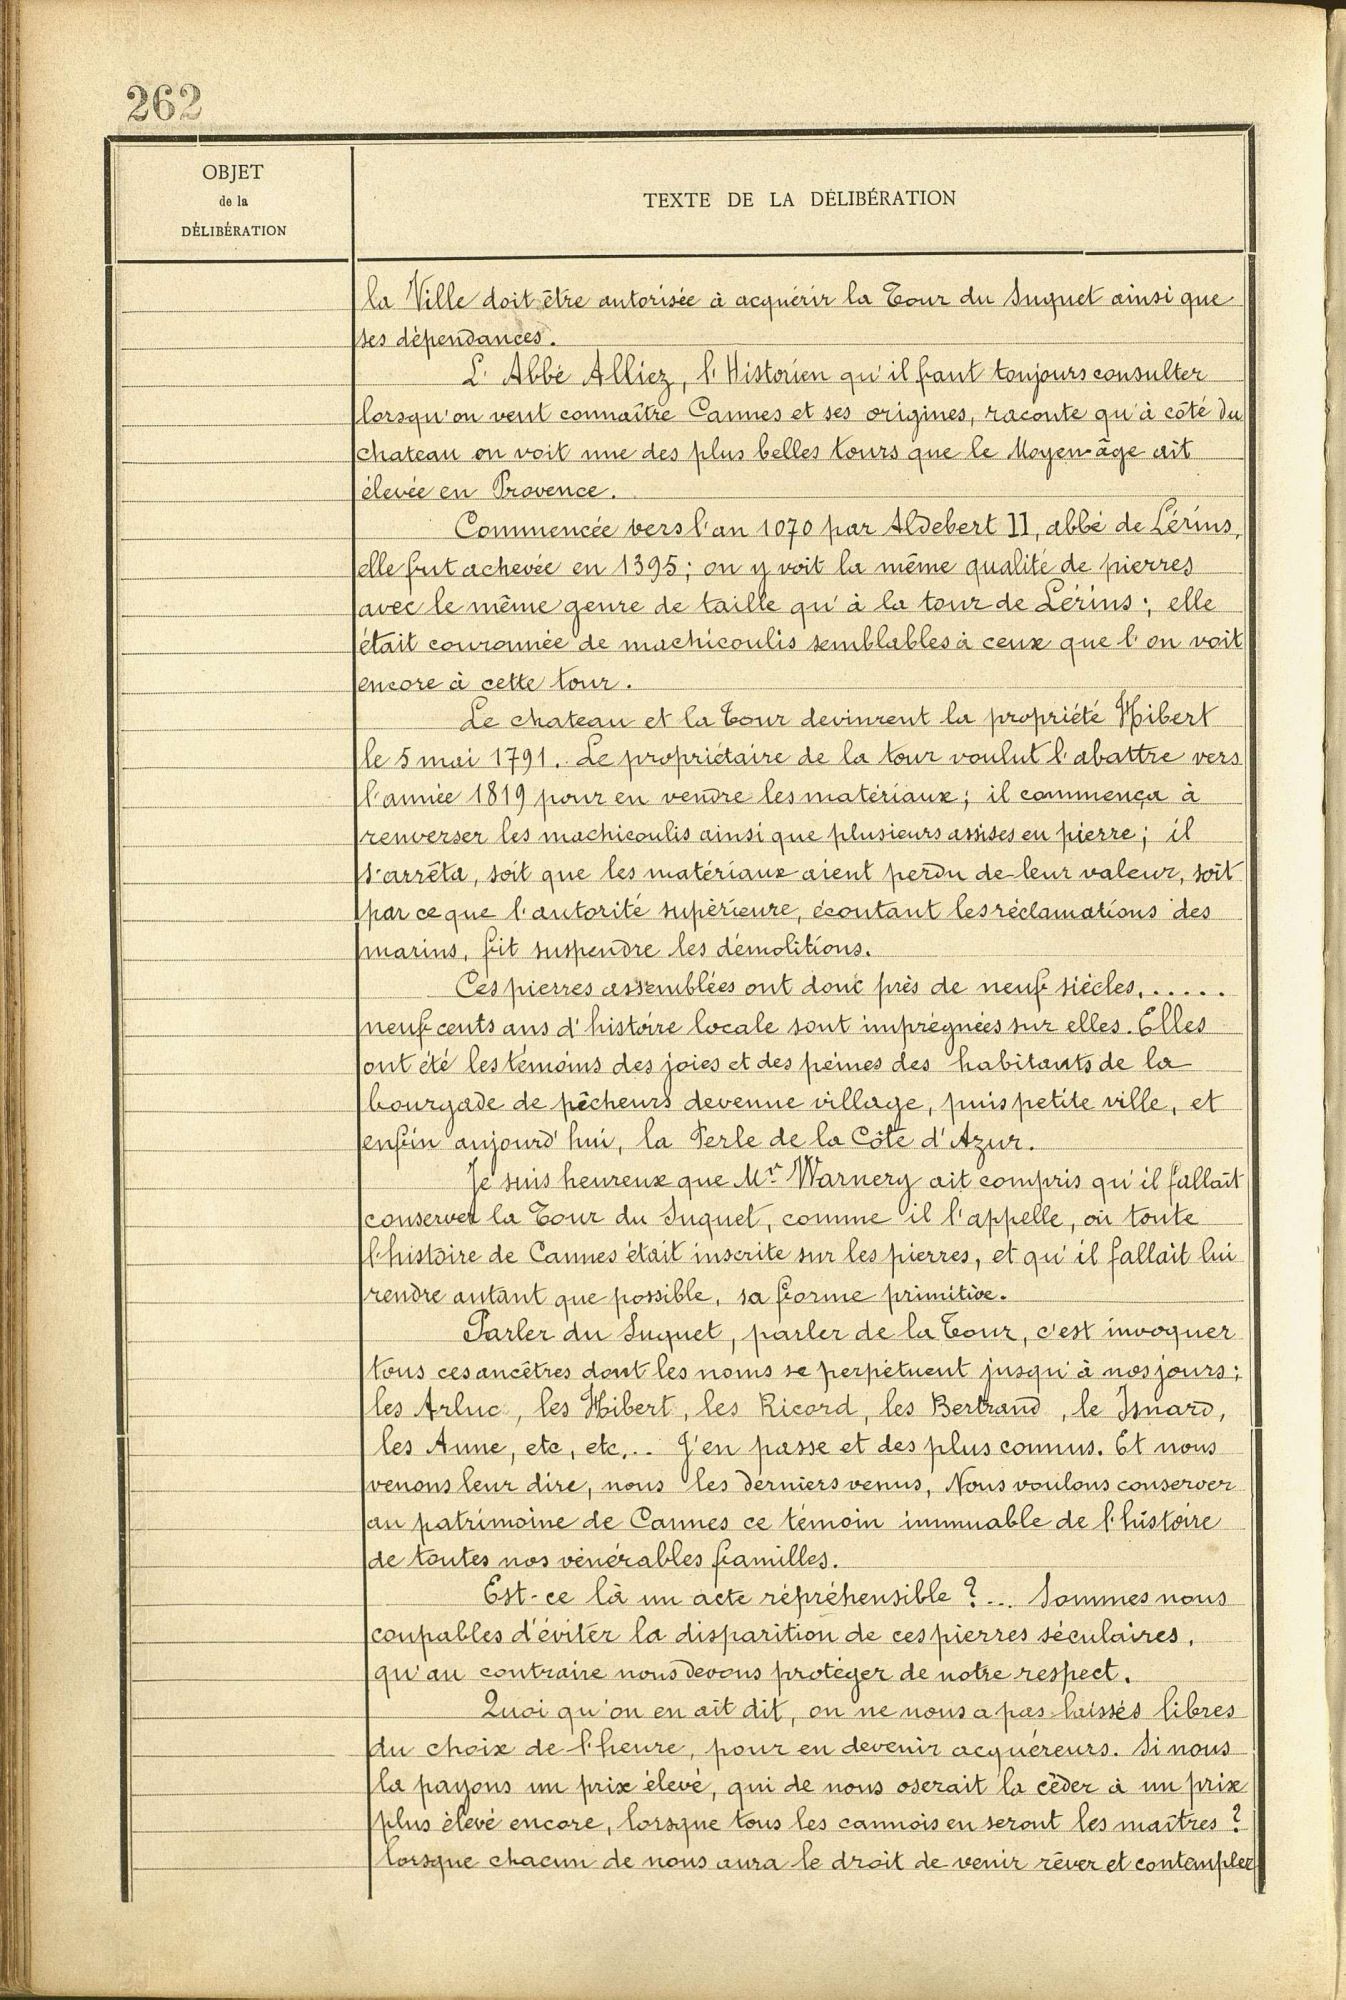 262
OBJET
de la
DÉLIBÉRATION
TEXTE DE LA DÉLIBÉRATION
la Ville doit être autorisée à acquérir la Tour du Suquet ainsi que
ses dépendances.
L'Abbé Alliez, l'Historien qu'il faut toujours consulter
lorsqu'on veut connaître Cannes et ses origines, raconte qu'à côté du
chateau on voit une des plus belles tours que le Moyen-âge ait
élevée en Provence.
Commencée vers l'an 1070 par Aldebert II, abbé de Lérins,
elle fut achevée en 1395; on y voit la même qualité de pierres
avec le même genre de taille qu'à la tour de Lérins; elle
était couronnée de machicoulis semblables à ceux que l'on voit
encore à cette tour.
Le chateau et la Tour devinrent la propriété Hibert
le 5 mai 1791. Le propriétaire de la tour voulut l'abattre vers
l'année 1819 pour en vendre les matériaux; il commença à
renverser les machicoulis ainsi que plusieurs assises en pierre; il
s'arrêta, soit que les matériaux aient perdu de leur valeur, soit
par ce que l'autorité supérieure, écoutant les réclamations des
marins, fit suspendre les démolitions.
Ces pierres assemblées ont donc près de neuf siècles, .....
neuf cents ans d'histoire locale sont imprégnées sur elles. Elles
ont été les témoins des joies et des peines des habitants de la
bourgade de pêcheurs devenue village, puis petite ville, et
enfin aujourd'hui, la Perle de la Côte d'Azur.
Je suis heureux que Mr Warnery ait compris qu'il fallait
conserver la Tour du Suquet, comme il l'appelle, où toute
l'histoire de Cannes était inscrite sur les pierres, et qu'il fallait lui
rendre autant que possible, sa forme primitive.
Parler du Suquet, parler de la Tour, c'est invoquer
tous ces ancêtres dont les noms se perpétuent jusqu'à nos jours;
les Arluc, les Hibert, les Ricord, les Bertrand, le Isnard,
les Aune, etc, etc... J'en passe et des plus connus. Et nous
venons leur dire, nous les derniers venus, Nous voulons conserver
au patrimoine de Cannes ce témoin immuable de l'histoire
de toutes nos vénérables familles.
Est-ce là un acte répréhensible ?... Sommes nous
coupables d'éviter la disparition de ces pierres séculaires,
qu'au contraire nous devons protéger de notre respect.
Quoi qu'on en ait dit, on ne nous a pas laissés libres
du choix de l'heure, pour en devenir acquéreurs. Si nous
la payons un prix élevé, qui de nous oserait la céder à un prix
plus élevé encore, lorsque tous les cannois en seront les maîtres ?
lorsque chacun de nous aura le droit de venir rêver et contempler